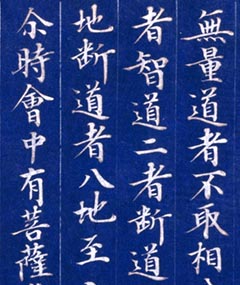 無量道者不取相
者智道二者断道
地断道者八地至
尒時會中有菩薩